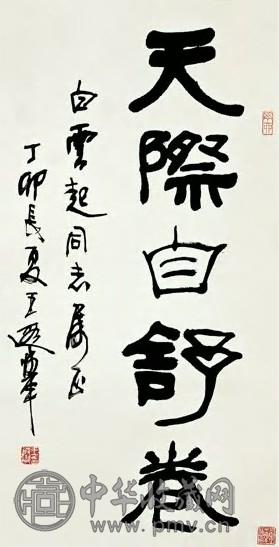 天際自舒卷
白雲起同志属正
丁卯長夏王遐舉
中华收藏网
www.pmv.cn